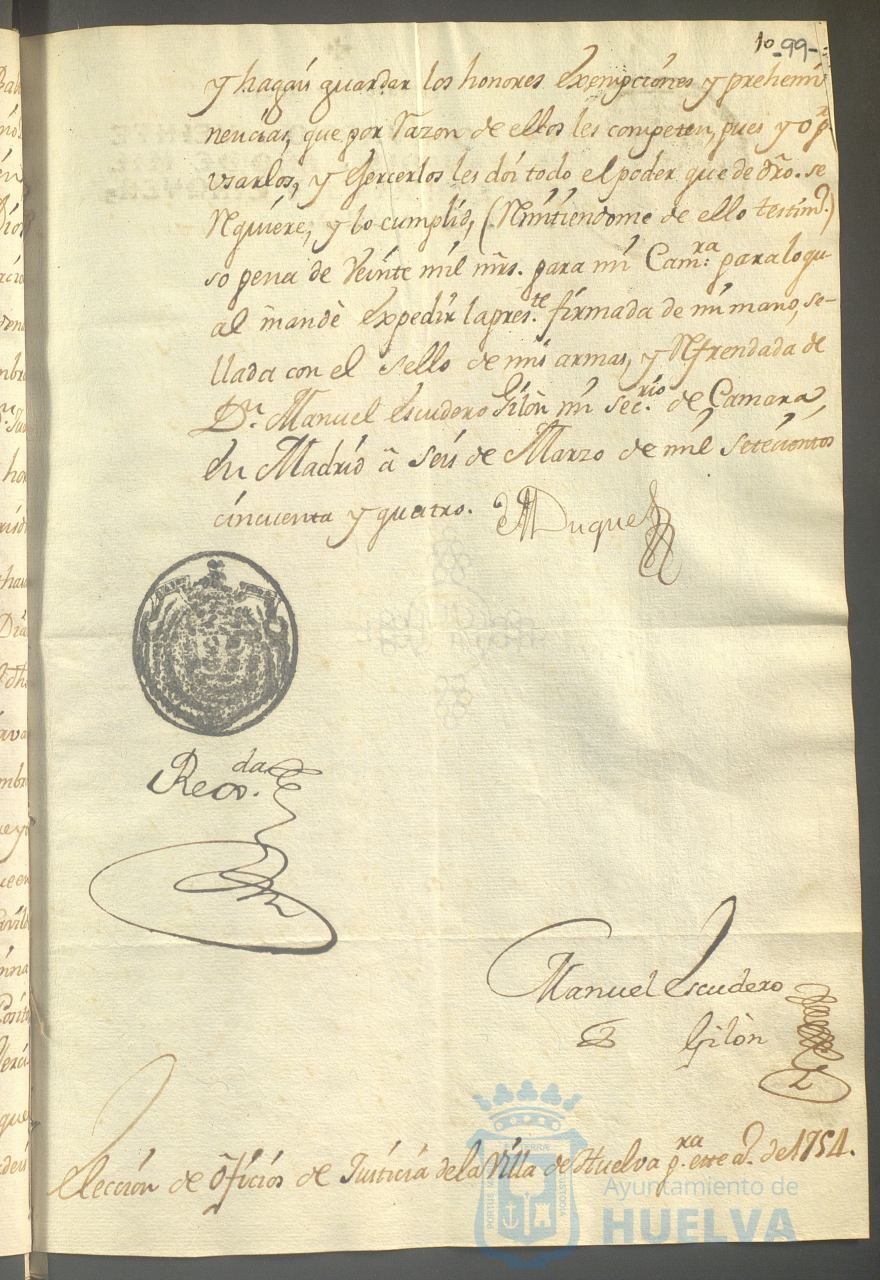 10 -99-
y hagáis guardar los honores Exempciónes y prehemí
nencias, que por razon de ellos les competen, pues yo pª
usarlos, y Exercerlos les doi todo el poder que de dro. se
requiére, y lo cumplid, (remitiendome de ello testimº.)
so pena de Veinte mil mrs. para mi Camrª. para lo qu
al mandè expedir la preste. firmada de mi mano, se-
llada con el sello de mis armas, y refrendada de
Dn. Manuel Escudero Gilòn mi secrio. de Camara,
en Madrid à seis de Marzo de mil setecientos
cincuenta y quatro. el Duque
Rexda.
Manuel Escudero
Gilòn
Elección de oficios de Justicia de la Villa de Huelva pra. este aº. de 1754.
PORTUS MARIS ET TERRAE CUSTODIA
Ayuntamiento de
HUELVA